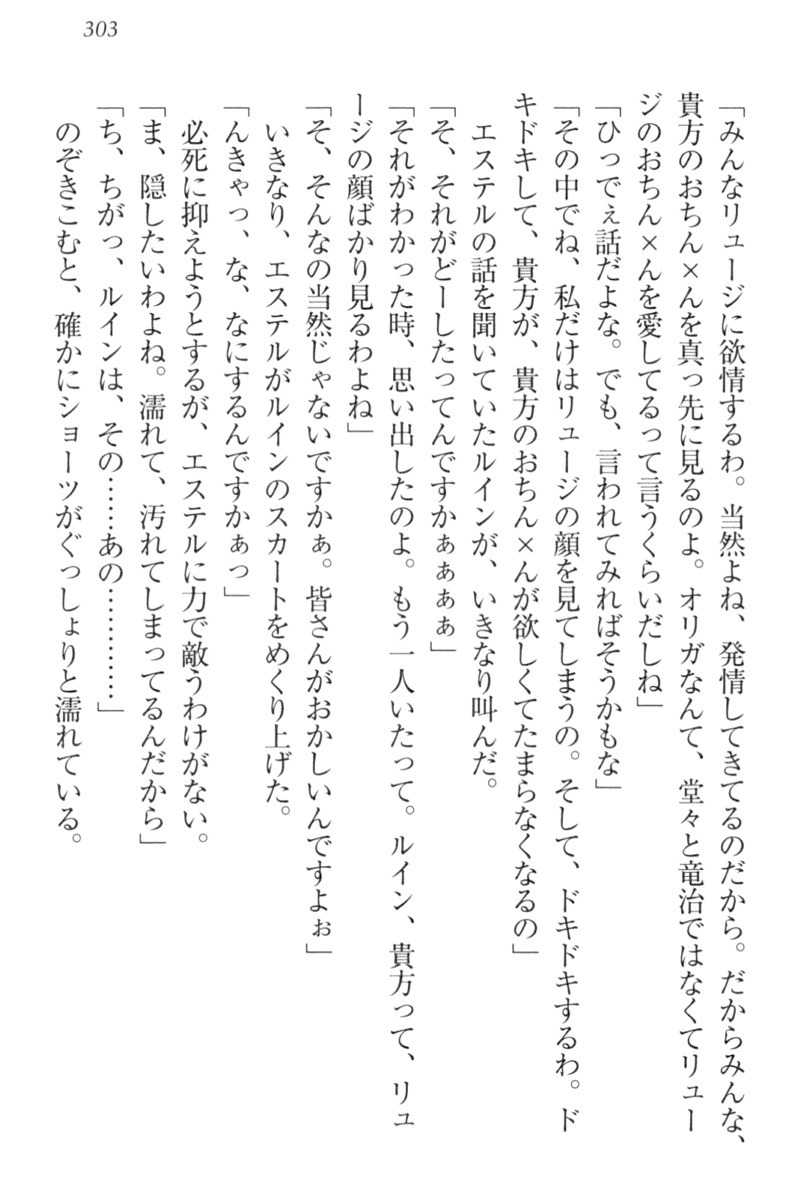 303
「みんなリュージに欲情するわ。当然よね、発情してきてるのだから。だからみんな、
貴方のおちん×んを真っ先に見るのよ。オリガなんて、堂々と竜治ではなくてリュー
ジのおちん×んを愛してるって言うくらいだしね」
「ひっでぇ話だよな。でも、言われてみればそうかもな」
「その中でね、私だけはリュージの顔を見てしまうの。そして、ドキドキするわ。ド
キドキして、貴方が、貴方のおちん×んが欲しくてたまらなくなるの」
エステルの話を聞いていたルインが、いきなり叫んだ。
「そ、それがどーしたってんですかぁぁぁぁ」
「それがわかった時、思い出したのよ。もう一人いたって。ルイン、貴方って、リュ
ージの顔ばかり見るわよね」
「そ、そんなの当然じゃないですかぁ。皆さんがおかしいんですよぉ」
いきなり、エステルがルインのスカートをめくり上げた。
「んきゃっ、な、なにするんですかぁっ」
必死に抑えようとするが、エステルに力で敵うわけがない。
「ま、隠したいわよね。濡れて、汚れてしまってるんだから」
「ち、ちがっ、ルインは、その……あの…………」
のぞきこむと、確かにショーツがぐっしょりと濡れている。